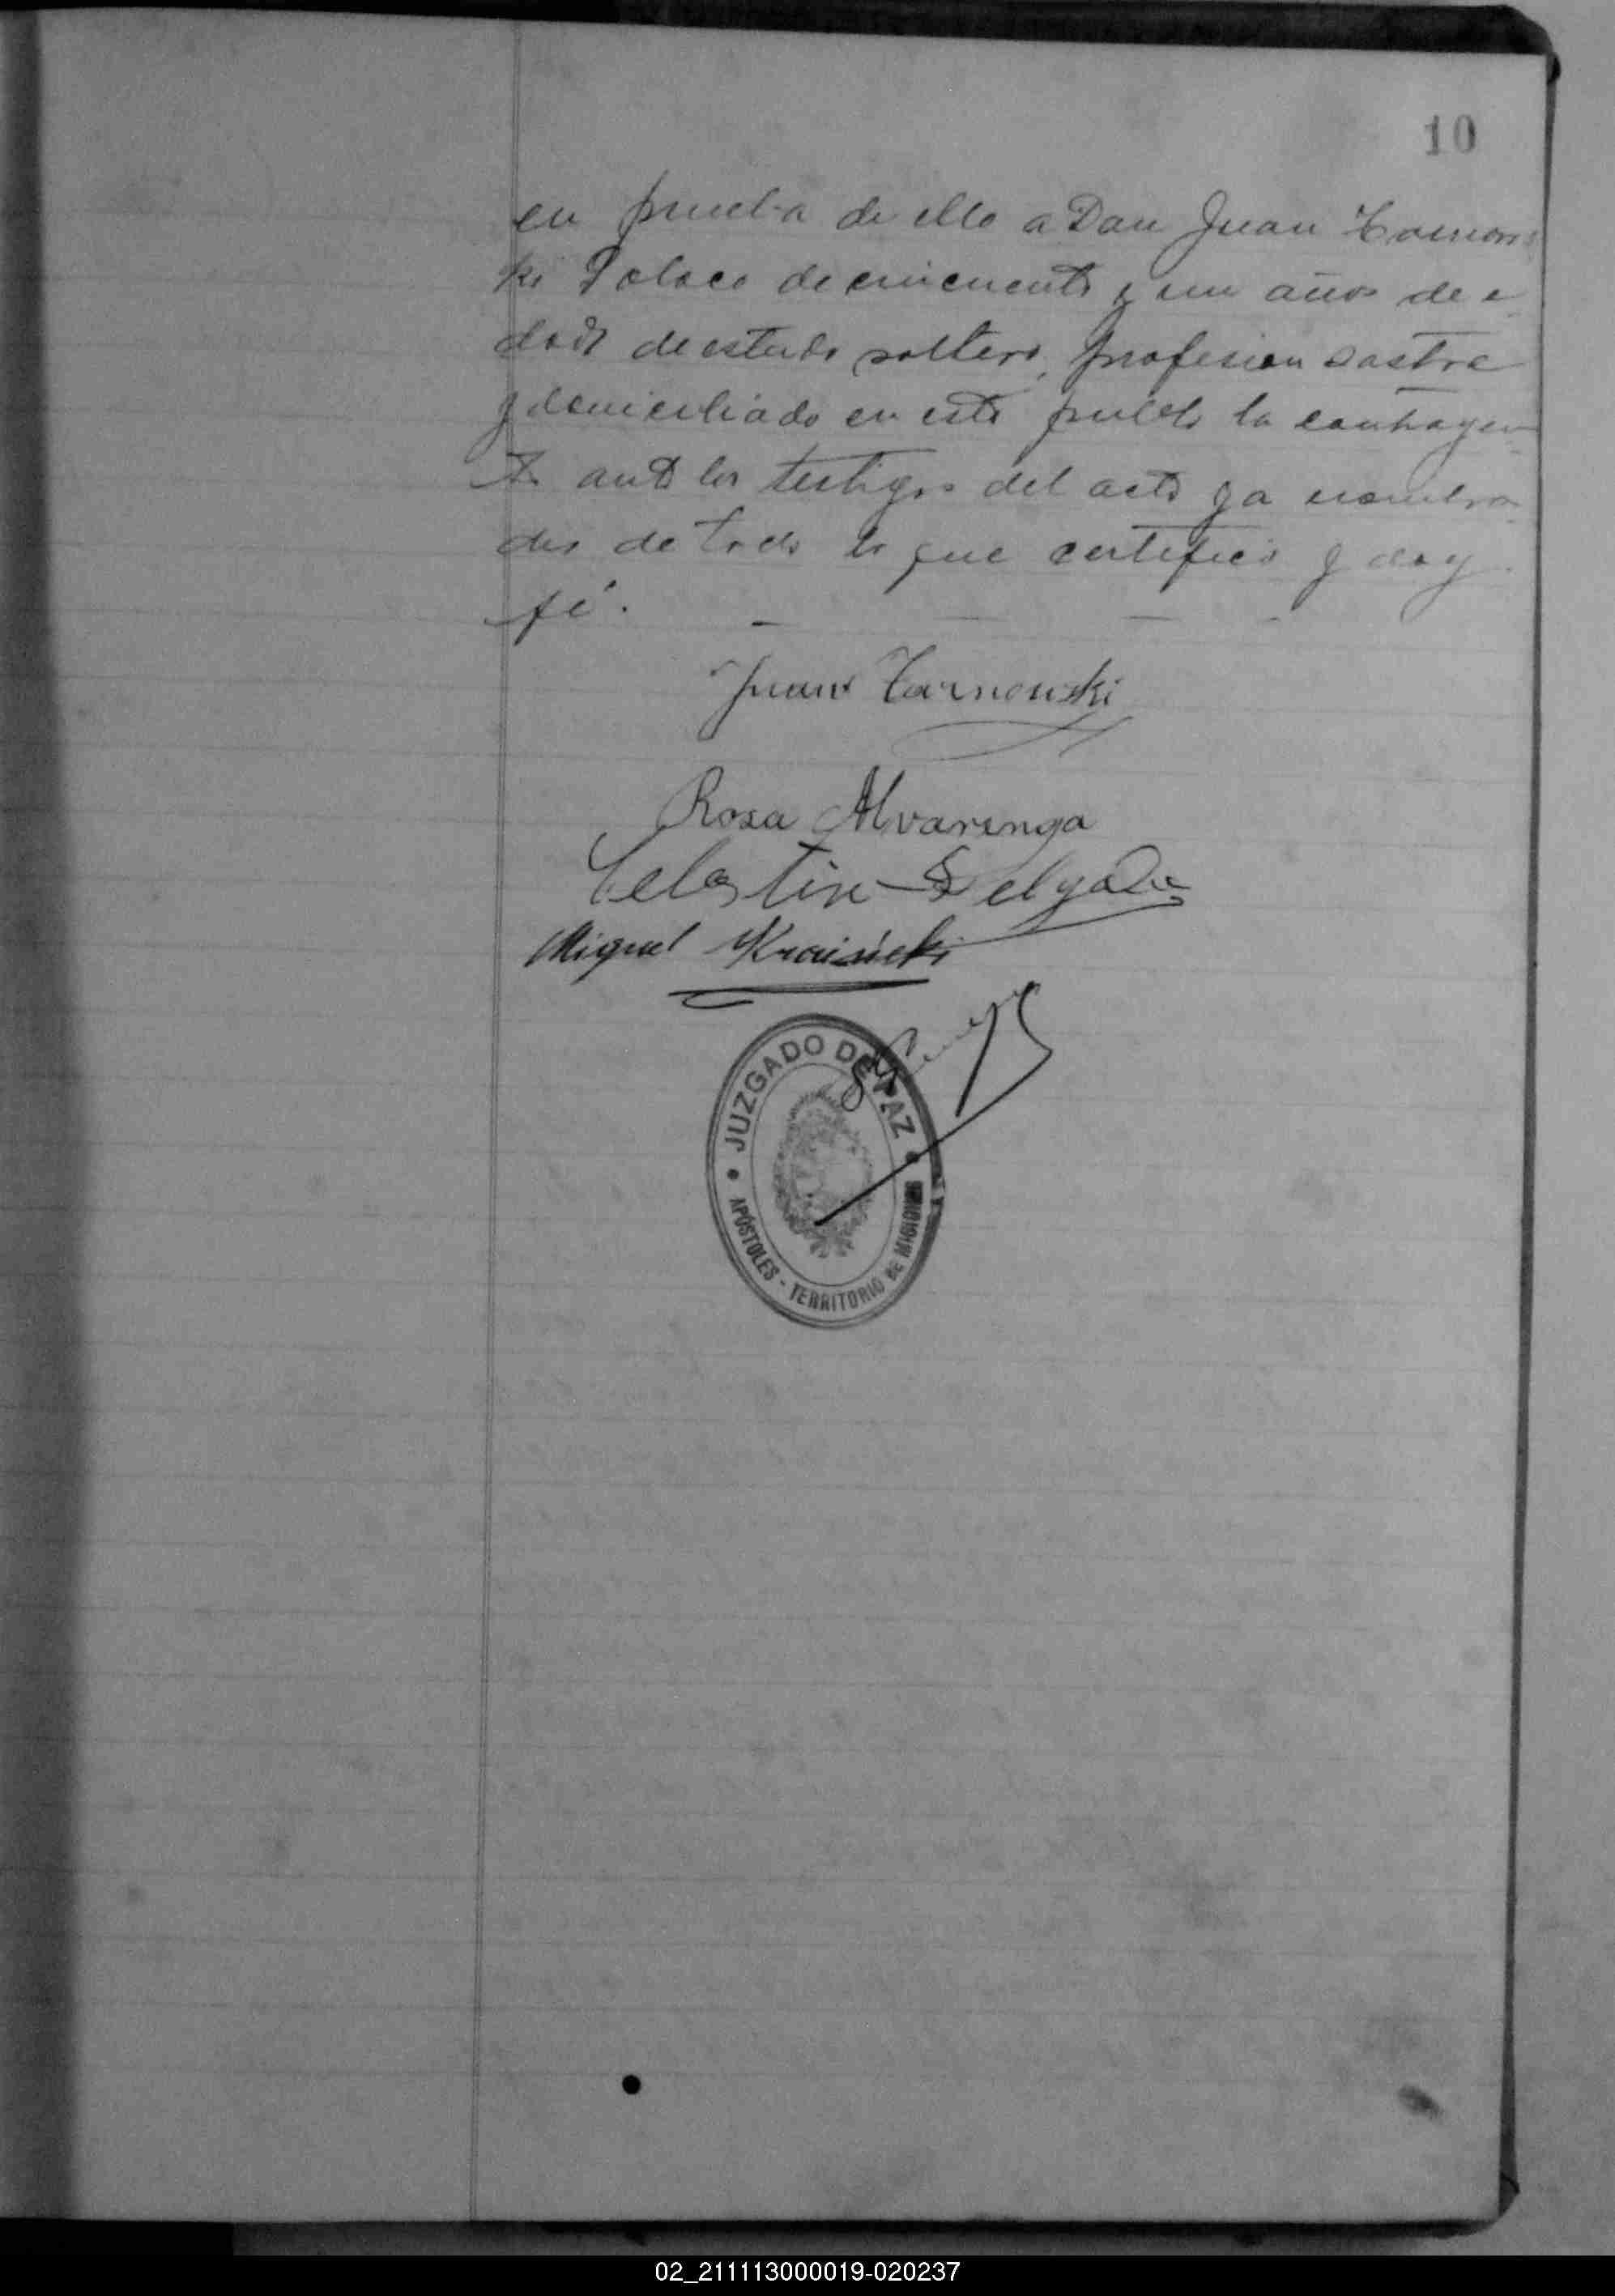 10
en prueba de ello a Don Juan Tarnows
ki Polaco de cincuenta y un años de e
dad de estado soltero, profesion sastre
y domiciliado en este pueblo la contrayen
te ante los testigos del acto ya nombra
dos de todo lo que certifico y doy
fé.
Juan Tarnowski
Rosa Alvarenga
Celestin Delgado
Miguel
JUZGADO DE PAZ
APÓSTOLES - TERRITORIO DE MISIONES
02_211113000019-020237